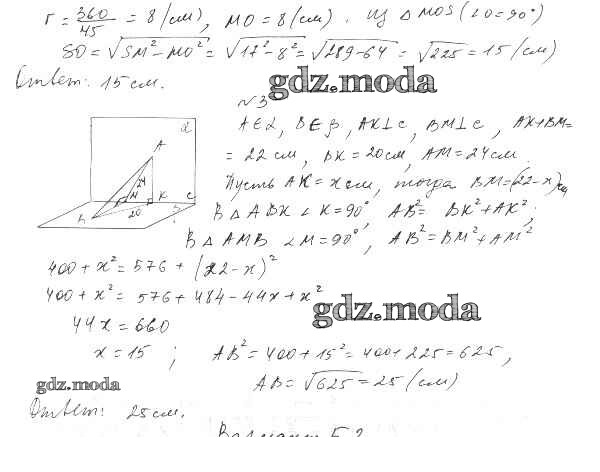 r = 360/45 = 8 (см), MO = 8 (см). Из △MOS (∠O = 90°)
SO = √SM² − MO² = √17² − 8² = √289−64 = √225 = 15 (см)
Ответ: 15 см.
gdz.moda
№3
A∈α, B∈β, AK⊥c, BM⊥c, AK+BM=
= 22 см, BK = 20 см, AM = 24 см.
Пусть AK = x см, тогда BM = (22−x) см
В △ABK ∠K = 90°, AB² = BK² + AK²;
В △AMB ∠M = 90°, AB² = BM² + AM²
α
A
24
K
C
20
400 + x² = 576 + (22−x)²
400 + x² = 576 + 484 − 44x + x²
gdz.moda
44x = 660
x = 15 ; AB² = 400 + 15² = 400 + 225 = 625,
gdz.moda
AB = √625 = 25 (см)
Ответ: 25 см.